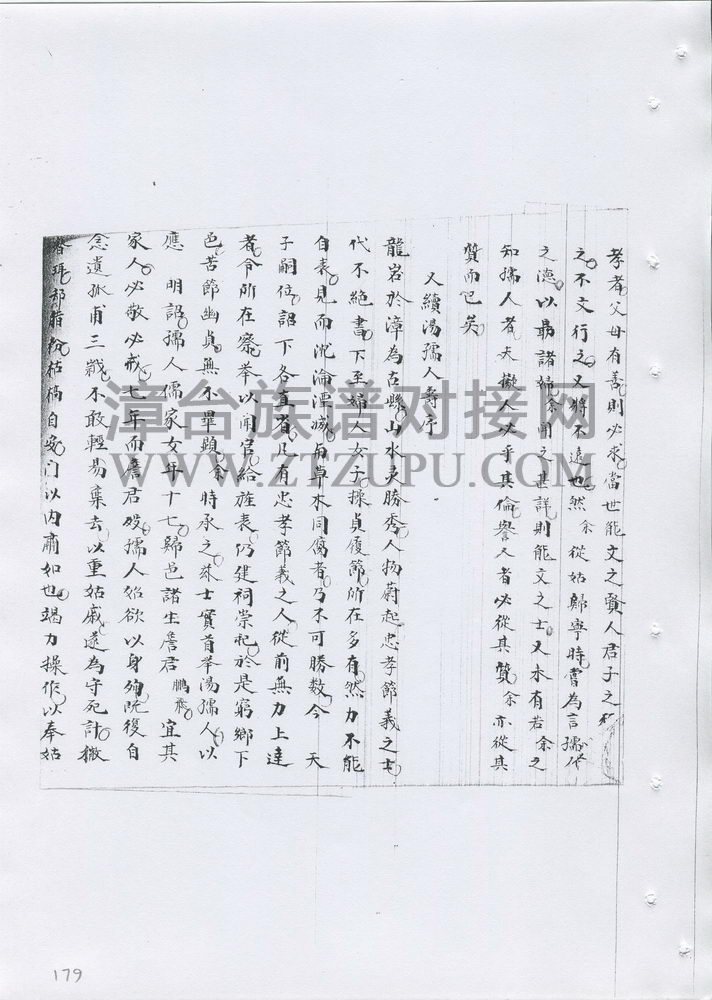 孝者父母有善則必求當世能文之賢人君子之
之不文行之又將不遠也然余從姑歸寧時嘗為言孺人
之德以勗諸婦余聞之甚詳則能文之士又未有若余之
知孺人者夫擬人必乎其倫譽人者必從其質余亦從其
質而已矣
又續湯孺人壽序
龍岩於漳為古縣山水灵勝秀人物蔚起忠孝節義之士
代不絕書下至婦人女子操貞履節所在多有然力不能
自表見而沈淪湮滅與草木同腐者乃不可勝数今 天
子嗣位詔下各直省凡有忠孝節義之人從前無力上達
者令所在察举以闻官给旌表仍建祠崇祀於是窮鄉下
邑苦節幽貞無不畢顯余時承之茲士實首举湯孺人以
應 明詔孺人儒家女年十七歸邑諸生詹君鵬飛宜其
家人必敬必戒七年而詹君殁孺人始欲以身殉既復自
念遺孤甫三歲不敢輕易棄去以重姑戚遂為守死計撤
簪珥却脂粉枯槁自安门以内肅如也竭力操作以奉姑
漳台族谱对接网
WWW.ZTZUPU.COM
179